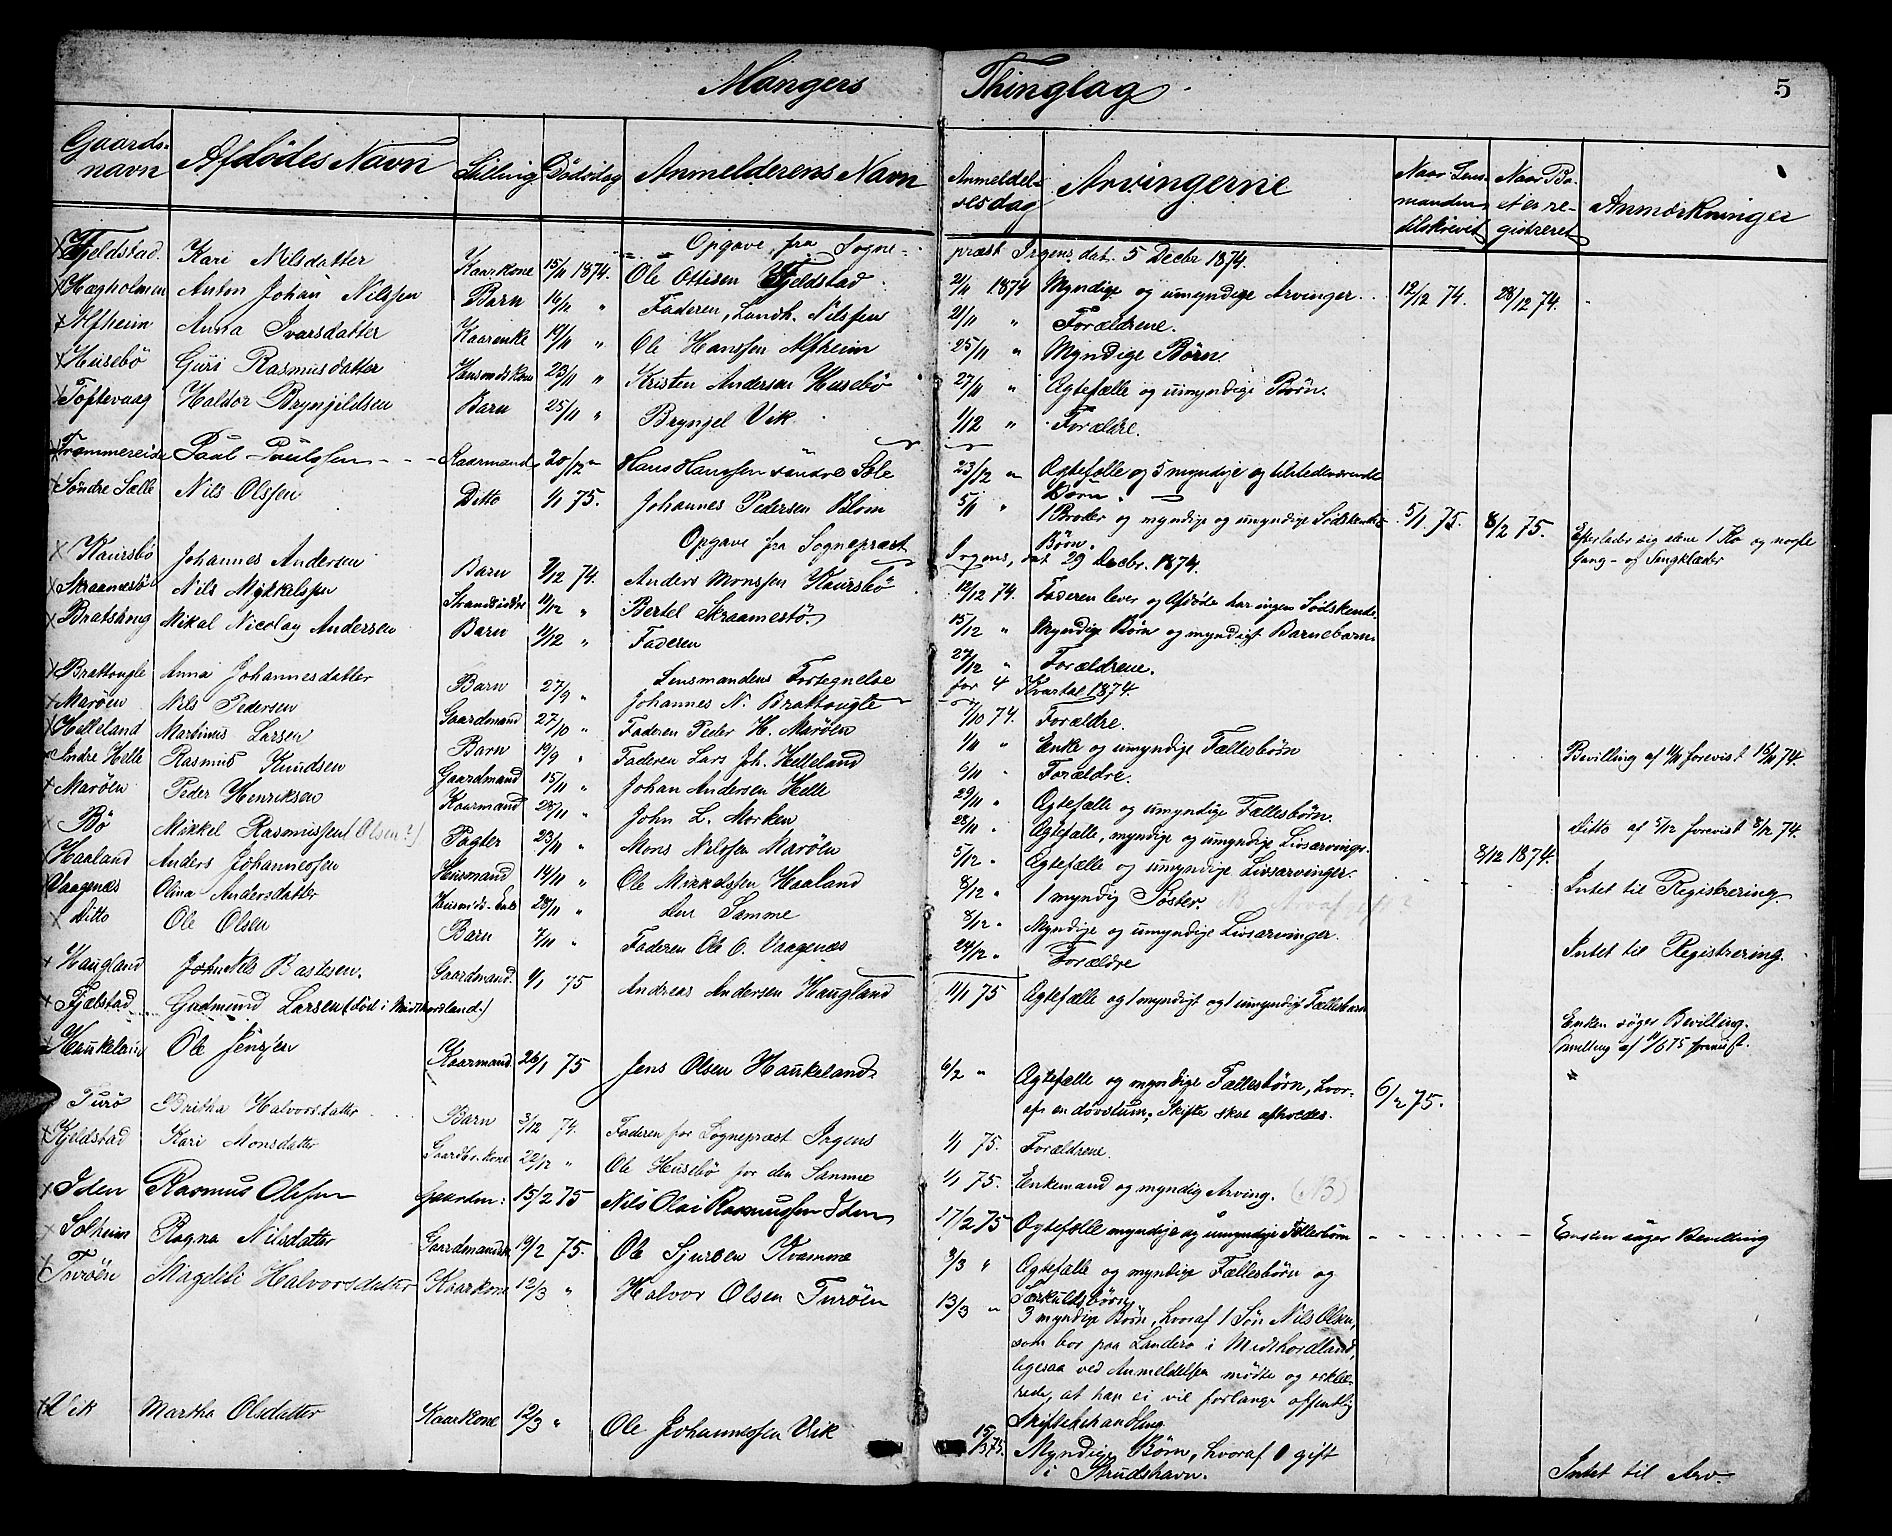 Mangers Thinglag
5
Gaards-navn Afdødes Navn Stilling Dødsdag Anmelderens Navn Anmeldel-sesdag Arvingerne Naar Lens-manden tilskrevet Naar Bo-et er re-gistreret Anmærkninger
Opgave fra Sogne-præst Irgens, dat. 5 Decbr 1874.
Fjeldstad Kari Nilsdatter Kaarkone 15/11 1874. Ole Ottisen Fjeldstad 21/11 1874 Myndige og umyndige Arvinger. 12/12 74. 28/12 74.
Hægholmen Anton Johan Nilssen Barn 16/11 " Faderen, Landh. Nilssen 21/11 " Forældrene.
Alfheim Anna Ivarsdatter Kaarenke 19/11 " Ole Hanssen Alfheim 25/11 " Myndige Børn.
Husebö Guri Rasmusdatter Husmdskone 23/11 " Kristen Andersen Husebö 27/11 " Ægtefælle og umyndige Børn.
Toftevaag Haldor Brynjeldsen Barn 25/11 " Brynjel Vik 1/12 " Forældre.
Trommereide Paul Paulssen Kaarmand 20/12 " Hans Hanssen söndre Sæle 23/12 " Ægtefælle og 5 myndige og tilstedeværende
Børn.
Söndre Sælle Nils Olssen Ditto 1/1 75. Johannes Pedersen Blom 5/1 " 1 Broder og myndige og umyndige Södskende- 5/1 75. 8/2 75. Efterlader sig alene 1 Ko og nogle
Børn. Gang- og Sengklæder
Opgave fra Sognepræst Irgens, dat 29 Decbr. 1874.
Kaursbö Johannes Andersen Barn 9/12 74. Anders Monssen Kaursbö 12/12 74. Faderen lever og Afdøde har ingen Södskende.
Skraamestö Nils Mykkelssen Strandsidder 11/12 " Bertel Skraamestö 15/12 " Myndige Børn og myndigt Barnebarn
Bratshaug Mikal Nicolay Andersen Barn 4/12 " Faderen 27/12 " Forældrene.
Lensmandens Fortegnelse for 4 Kvartal 1874.
Brattaugle Anna Johannesdatter Barn 27/9 " Johannes N. Brattaugle 7/10 74. Forældre.
Marøen Nils Pedersen Gaardmand 27/10 " Faderen Peder H. Marøen 1/11 " Enke og umyndige Fællesbørn Bevilling af 11/11 forevist 15/11 74.
Helleland Martinus Larsen Barn 19/9 " Faderen Lars Joh. Helleland 6/11 " Forældre.
Indre Helle Rasmus Knudsen Gaardmand 15/11 " Johan Andersen Helle 29/11 " Ægtefælle og umyndige Fællesbørn. Ditto af 5/12 forevist 8/12 74.
Marøen Peder Henriksen Kaarmand 28/11 " John L. Morken 28/11 " Ægtefælle, myndige og umyndige Livsarvinger.
Bö Mikkel Rasmussen (Olsen?) Pagter 23/11 " Mons Nilssen Marøen 5/12 " Ægtefælle og umyndige Livsarvinger. 8/12 1874.
Haaland Anders Johannessen Husmand 14/11 " Ole Mikkelssen Haaland 8/12 " 1 myndig Søster. Intet til Registrering
Vaagenæs Olina Andersdatter Husmds. Enke 28/11 " den Samme 8/12 " Myndige og umyndige Livsarvinger.
Ditto Ole Olsen Barn 7/11 " Faderen Ole O. Vaagenæs 24/12 " Forældre Intet til Registrering.
Haugland Nils Bastesen. Gaardmand. 4/1 75 Andreas Andersen Haugland 11/1 75 Ægtefælle og 1 myndigt og 1 umyndigt Fællesbarn
Fjælstad Gudmund Larsen (död i Midthordland.) Enken søger Bevilling.
Haukeland Ole Jensen Kaarmand 26/1 75 Jens Olsen Haukeland 6/2 " Ægtefælle og myndige Fællesbørn, hvor- 6/2 75.
af en døvstum, Skifte skal afholdes.
Turö Britha Halvorsdatter Barn 3/12 74. Faderen for Sognepræst Irgens 1/1 75. Forældrene.
Fjeldstad Kari Monsdatter Gaardbr.kone 22/12 " Ole Husebö for den Samme 1/1 75. Enkemand og myndig Arving. (NB)
Iden Rasmus Olssen 15/2 75 Nils Olai Rasmussen Iden 17/2 75 Ægtefælle myndige og umyndige Fællesbørn Enken søger Bevilling
Solheim Ragna Nilsdatter Gaardmandsk. 19/2 75. Ole Sjursen Kvamme 3/3 " Ægtefælle og myndige Fællesbørn og
Særkuldsbørn
Turöen Magdeli Halvorsdatter Kaarkone 12/3 " Halvor Olsen Turöen 13/3 " 3 myndige Børn, hvoraf 1 Søn Nils Olsen,
som bor paa Landero i Midthordland,
ligesaa ved Anmeldelsen mødte og erklæ-
rede, at han ei vil forlange offentlig
Skiftebehandling
Vik Martha Olsdatter Kaarkone 12/3 " Ole Johannessen Vik 15/3 75. Myndige Børn, hvoraf 1 gift
i Strudshavn. Intet til Arv.